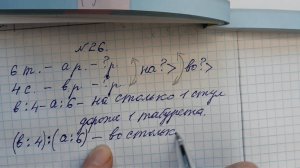 №26.
6 т. – а р. – ? р
4 с. – в р. – ? р на ? > во ? >
в : 4 – а : 6 – на столько 1 стул
дороже 1 табурета.
(в : 4) : (а : 6) – во стольк